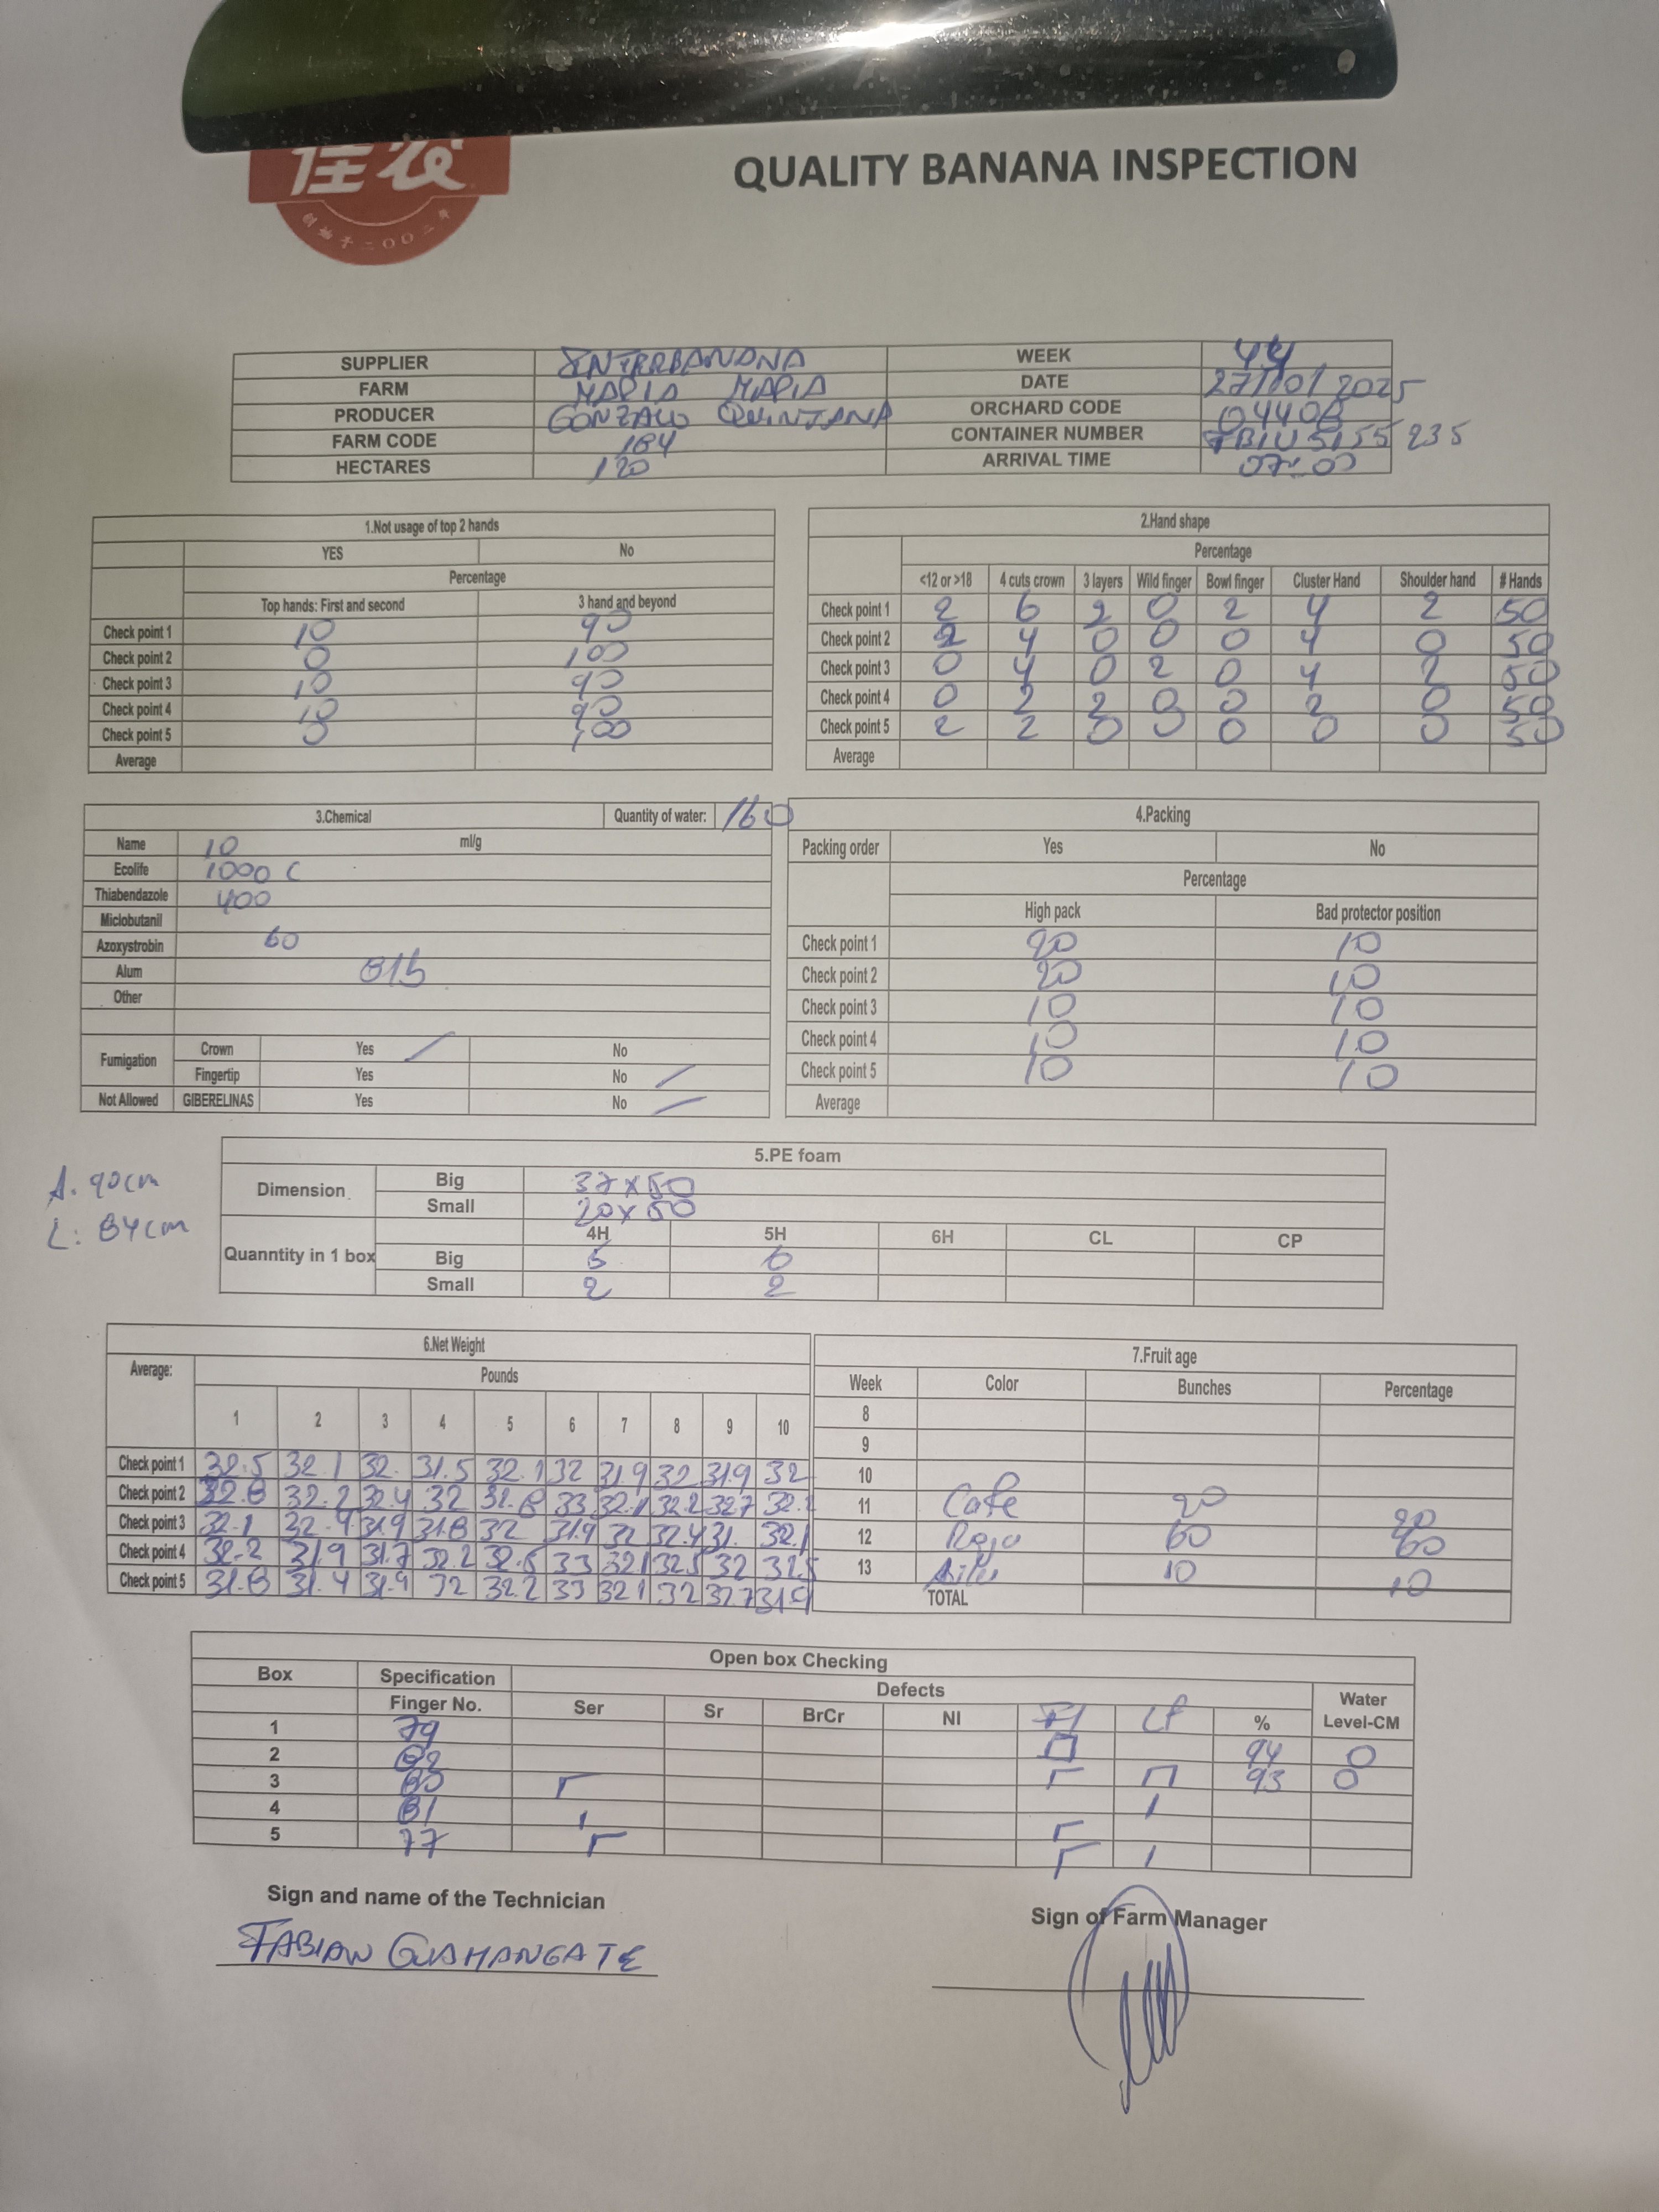 佳农
创始于二〇〇二年
QUALITY BANANA INSPECTION
SUPPLIER INTERBANANA WEEK 44
FARM MARIA MARIA DATE 27/10/2025
PRODUCER GONZALO QUINTANA ORCHARD CODE 04408
FARM CODE 184 CONTAINER NUMBER TBIU5155235
HECTARES 120 ARRIVAL TIME 07:00
1.Not usage of top 2 hands
YES No
Percentage
Top hands: First and second 3 hand and beyond
Check point 1 10 90
Check point 2 0 100
Check point 3 10 90
Check point 4 10 90
Check point 5 0 100
Average
2.Hand shape
Percentage
<12 or >18 4 cuts crown 3 layers Wild finger Bowl finger Cluster Hand Shoulder hand # Hands
Check point 1 2 6 2 0 2 4 2 50
Check point 2 2 4 0 0 0 4 0 50
Check point 3 0 4 0 2 0 4 2 50
Check point 4 0 2 2 0 0 2 0 50
Check point 5 2 2 0 0 0 0 0 50
Average
3.Chemical Quantity of water: 160
Name 10 ml/g
Ecolife 1000 C
Thiabendazole 400
Miclobutanil
Azoxystrobin 60
Alum 81b
Other
Fumigation Crown Yes No
Fingertip Yes No
Not Allowed GIBERELINAS Yes No
4.Packing
Packing order Yes No
Percentage
High pack Bad protector position
Check point 1 20 10
Check point 2 20 10
Check point 3 10 10
Check point 4 10 10
Check point 5 10 10
Average
A. 90cm
L: 84cm
5.PE foam
Dimension Big 37x50
Small 20x50
4H 5H 6H CL CP
Quanntity in 1 box Big 5 6
Small 2 2
6.Net Weight
Average: Pounds
1 2 3 4 5 6 7 8 9 10
Check point 1 32.5 32.1 32. 31.5 32.1 32 31.9 32 31.9 32
Check point 2 32.8 32.2 32.4 32 32.8 33 32.1 32.2 32.7 32.2
Check point 3 32.1 32.4 31.9 31.8 32 31.9 32 32.4 31. 32.1
Check point 4 32.2 31.9 31.7 32.2 32.5 33 32.1 32.5 32 32.5
Check point 5 31.8 31.4 31.9 32 32.2 33 32.1 32 32.7 31.9
7.Fruit age
Week Color Bunches Percentage
8
9
10
11 Cafe 20 20
12 Rojo 60 60
13 10 10
TOTAL
Open box Checking
Box Specification Defects Water
Finger No. Ser Sr BrCr NI FI LF % Level-CM
1 79 94 0
2 82 93 0
3 80
4 81
5 77
Sign and name of the Technician
FABIAN GUAMANGATE
Sign of Farm Manager